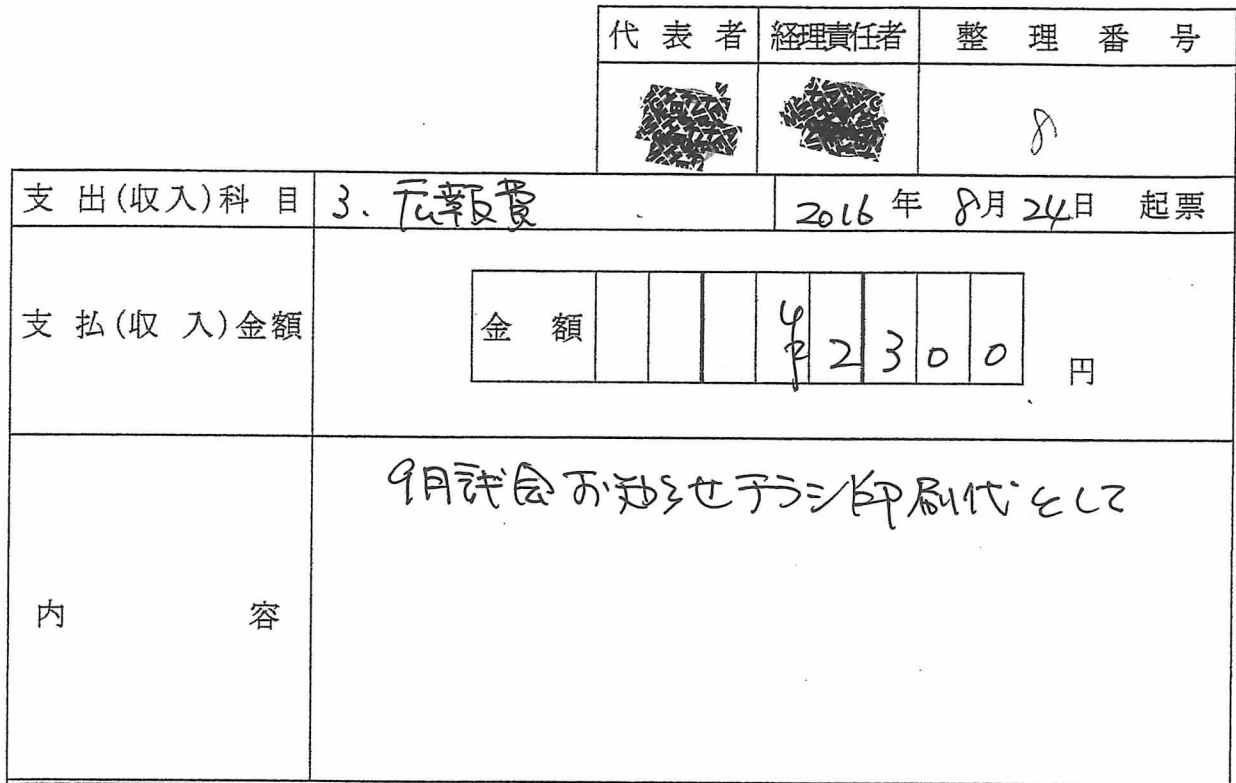 代表者 経理責任者 整理番号
8
支出(収入)科目 3. 広報費 2016年 8月24日 起票
支払(収入)金額 金額 ¥2300 円
9月議会お知らせチラシ印刷代として
内容